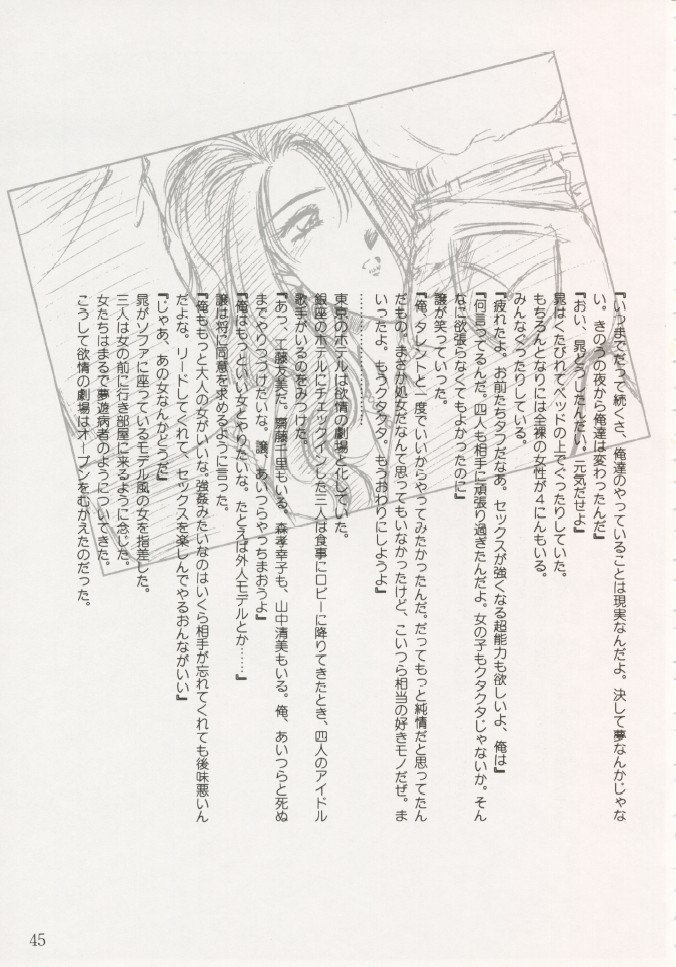 『いつまでだって続くさ、俺達のやっていることは現実なんだよ。決して夢なんかじゃな
い。きのうの夜から俺達は変わったんだ』
『おい、晁どうしたんだい。元気だせよ』
晁はくたびれてベッドの上でぐったりしていた。
もちろんとなりには全裸の女性が４にんもいる。
みんなぐったりしている。
『疲れたよ。お前たちタフだなあ。セックスが強くなる超能力も欲しいよ、俺は』
『何言ってるんだ。四人も相手に頑張り過ぎたんだよ。女の子もクタクタじゃないか。そん
なに欲張らなくてもよかったのに』
譲が笑っていった。
『俺、タレントと一度でいいからやってみたかったんだ。だってもっと純情だと思ってたん
だもの。まさか処女だなんて思ってもいなかったけど、こいつら相当の好きモノだぜ。ま
いったよ。もうクタクタ。もうおわりにしようよ』
東京のホテルは欲情の劇場と化していた。
銀座のホテルにチェックインした三人は食事にロビーに降りてきたとき、四人のアイドル
歌手がいるのをみつけた。
『あっ、工藤友美だ。齋藤千里もいる。森孝幸子も、山中清美もいる。俺、あいつらと死ぬ
までやりつづけたいな。譲、あいつらやっちまおうよ』
『俺はもっといい女とやりたいな。たとえば外人モデルとか……』
譲は将に同意を求めるように言った。
『俺ももっと大人の女がいいな。強姦みたいなのはいくら相手が忘れてくれても後味悪いん
だよな。リードしてくれて、セックスを楽しんでやるおんながいい』
『じゃあ、あの女なんかどうだ』
晁がソファに座っているモデル風の女を指差した。
三人は女の前に行き部屋に来るように念じた。
女たちはまるで夢遊病者のようについてきた。
こうして欲情の劇場はオープンをむかえたのだった。
45